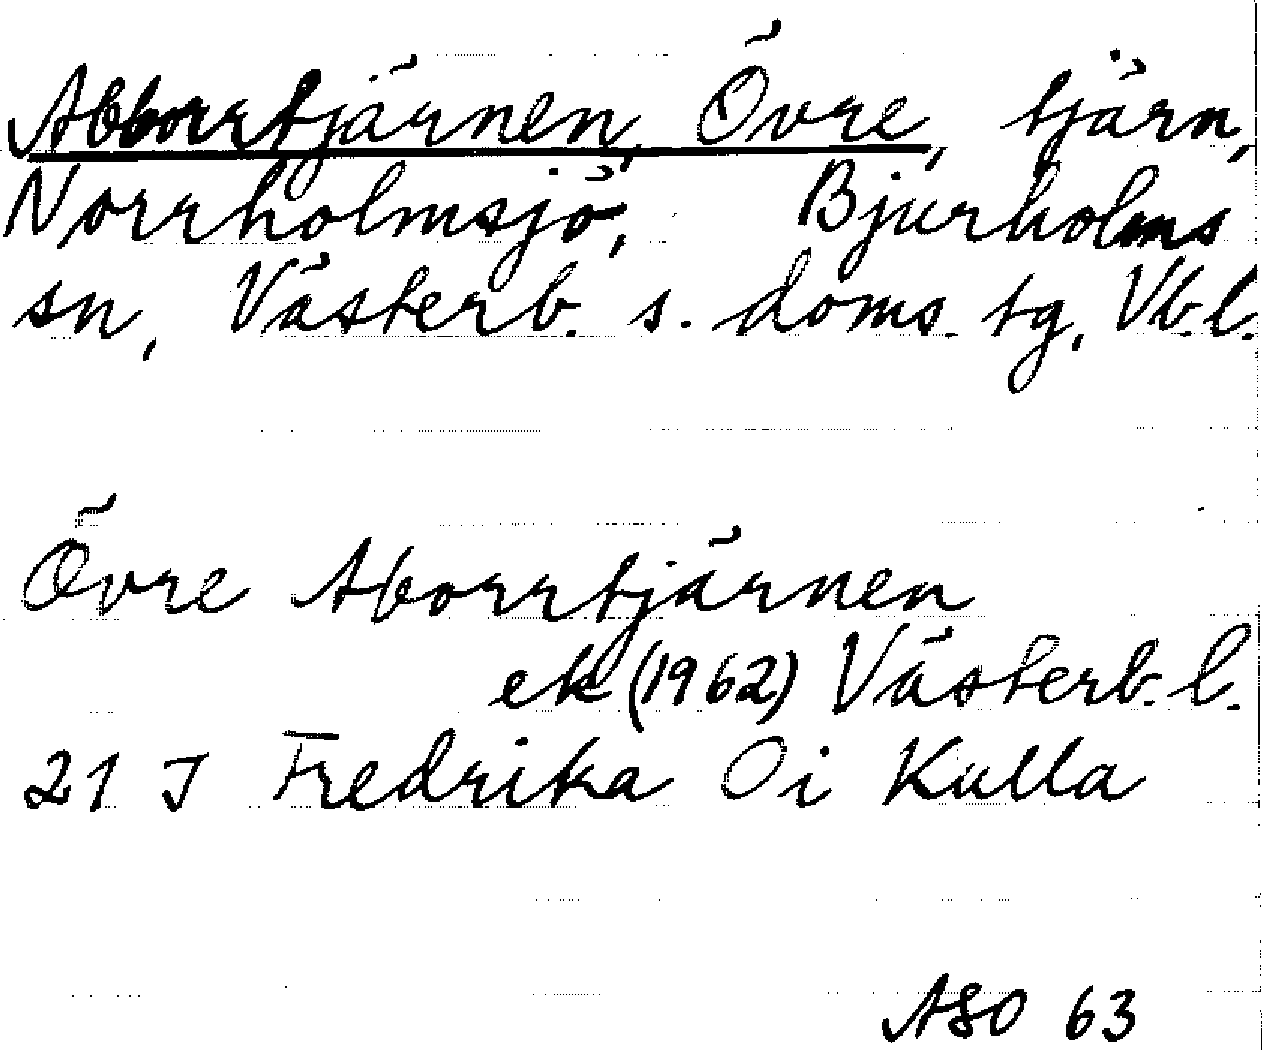 Abborrtjärnen, Övre, tjärn,
Norrholmsjö, Bjurholms
sn, Västerb. s. doms. tg, Vb.l.
Övre Aborrtjärnen
ek (1962) Västerb. l.
21 J Fredrika Oi Kulla
ASO 63